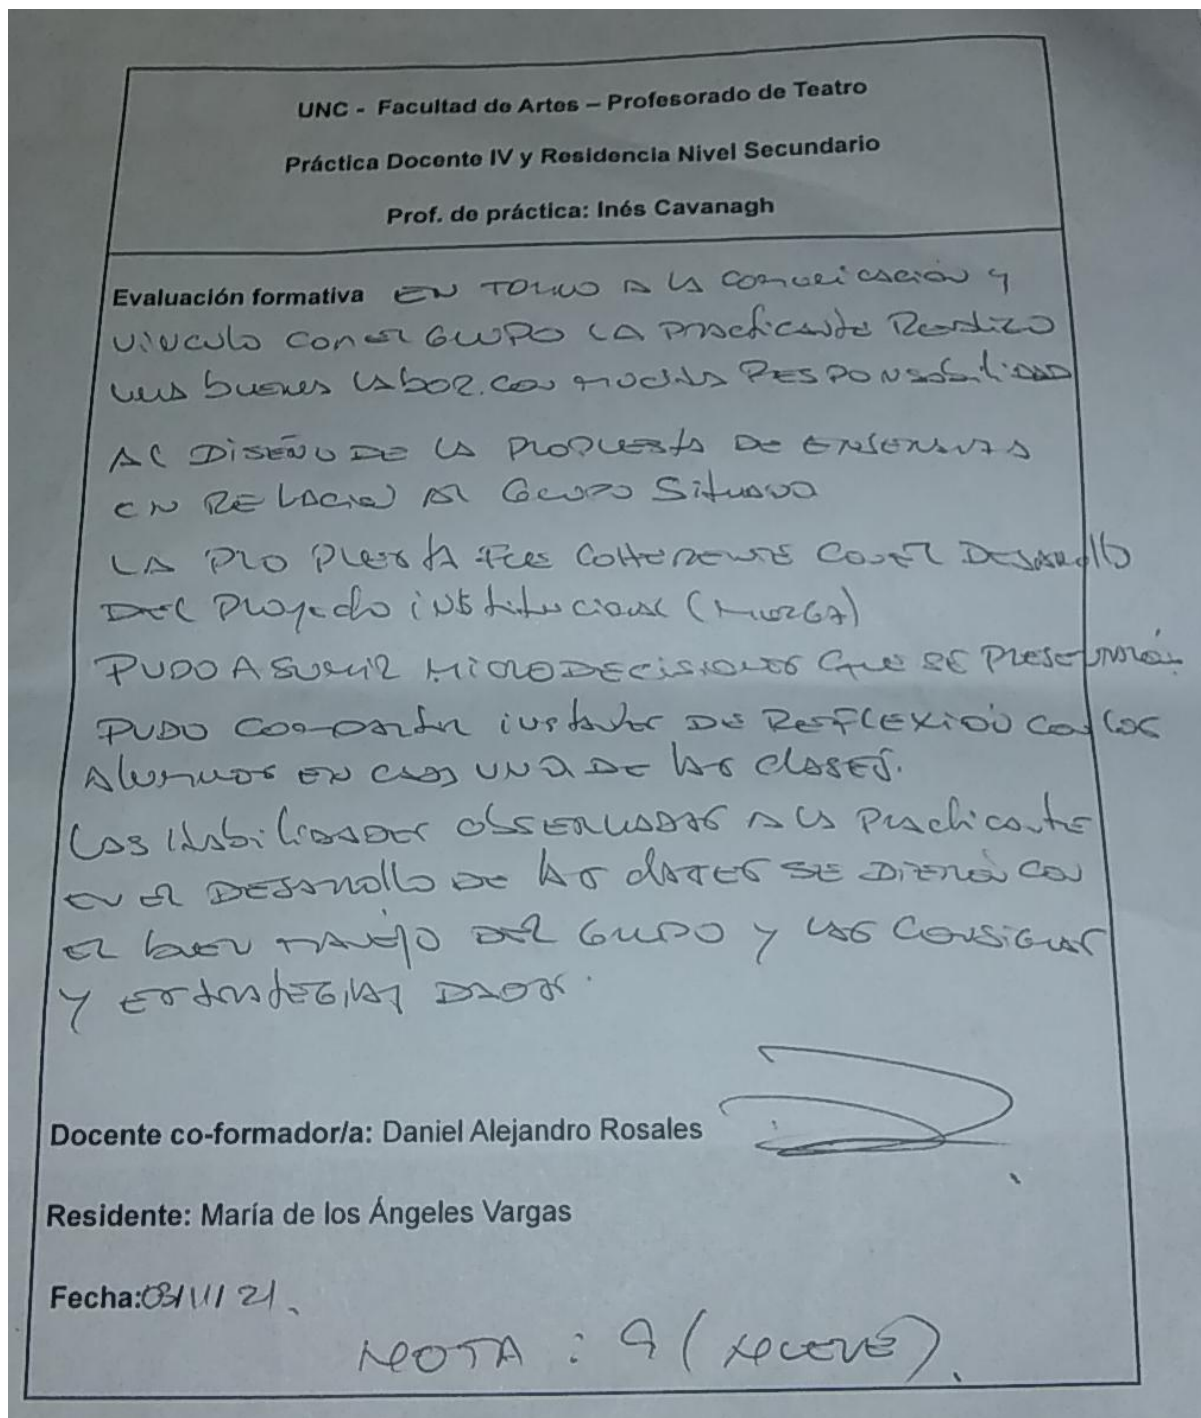 UNC - Facultad de Artes – Profesorado de Teatro
Práctica Docente IV y Residencia Nivel Secundario
Prof. de práctica: Inés Cavanagh
Evaluación formativa EN TORNO A LA COMUNICACIÓN Y
VINCULO CON EL GRUPO LA Practicante Realizo
una buena labor. con mucha RESPONSABILIDAD
AL DISEÑO DE LA PROPUESTA DE ENSEÑANZA
EN RELACION AL GRUPO SITUADO
LA PROPUESTA FUE COHERENTE CON EL DESARROLLO
DEL Proyecto institucional (MURGA)
PUDO ASUMIR MICRODECISIONES QUE SE PRESENTARÓN
PUDO COMPARTIR instantes DE REFLEXIÓN CON LOS
Alumnos EN CADA UNA DE LAS CLASES.
LAS Habilidades OBSERVADAS A LA Practicante
EN EL DESARROLLO DE LAS CLASES SE DIERÓN CON
EL buen MANEJO DEL GRUPO Y LAS CONSIGNAS
Y ESTRATEGIAS DADAS.
Docente co-formador/a: Daniel Alejandro Rosales
Residente: María de los Ángeles Vargas
Fecha: 03/11/21.
NOTA: 9 (NUEVE).